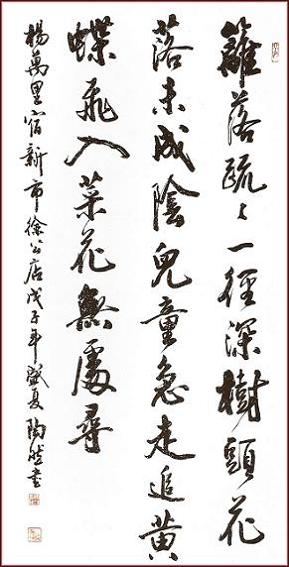 籬落疏〻一徑深樹頭花
落未成陰兒童急走追黃
蝶飛入菜花無處尋
楊萬里宿新市徐公店戊子年盛夏陶然書